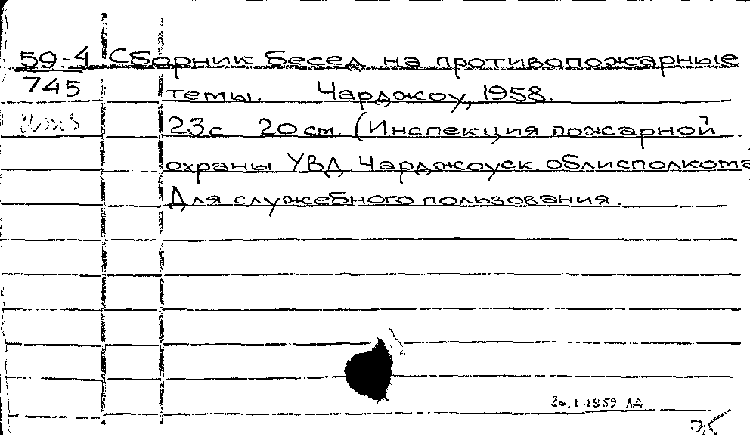 59-4 Сборник бесед на противопожарные
745 темы. Чарджоу, 1958.
23с 20 см. (Инспекция пожарной
охраны УВД Чарджоуск. облисполкома
Для служебного пользования.